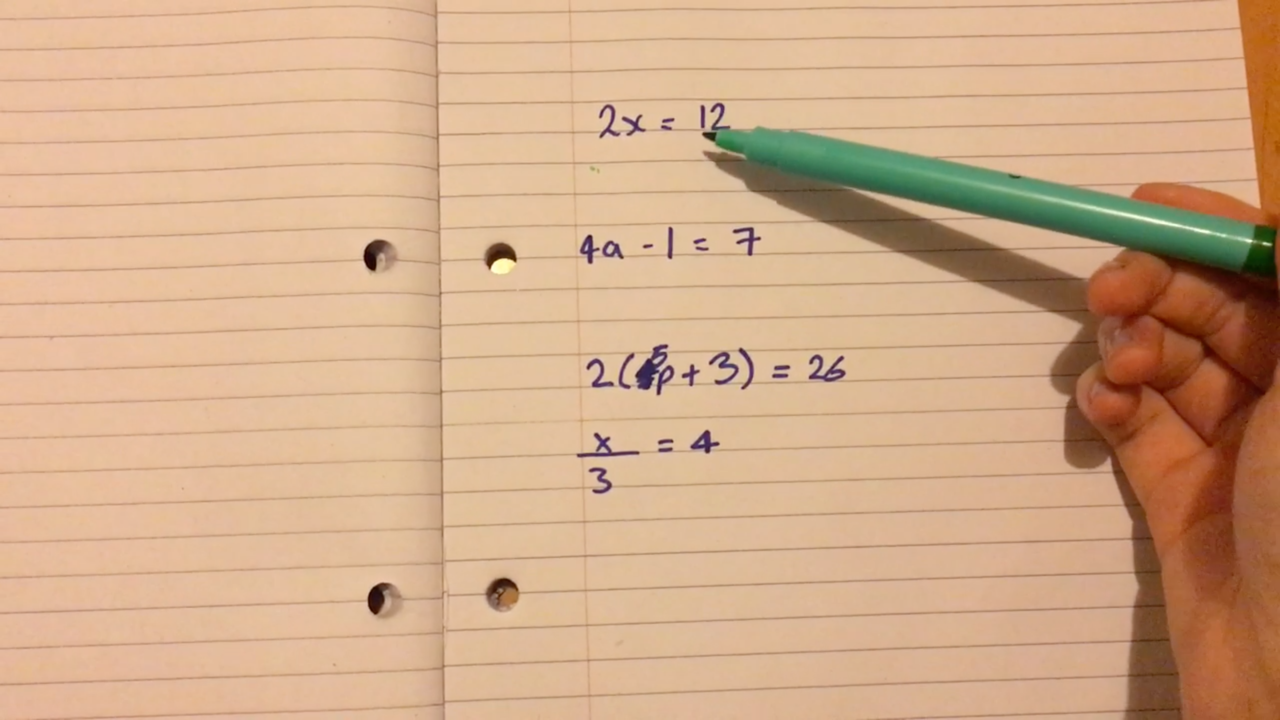 2x = 12
4a - 1 = 7
2(5p + 3) = 26
x/3 = 4